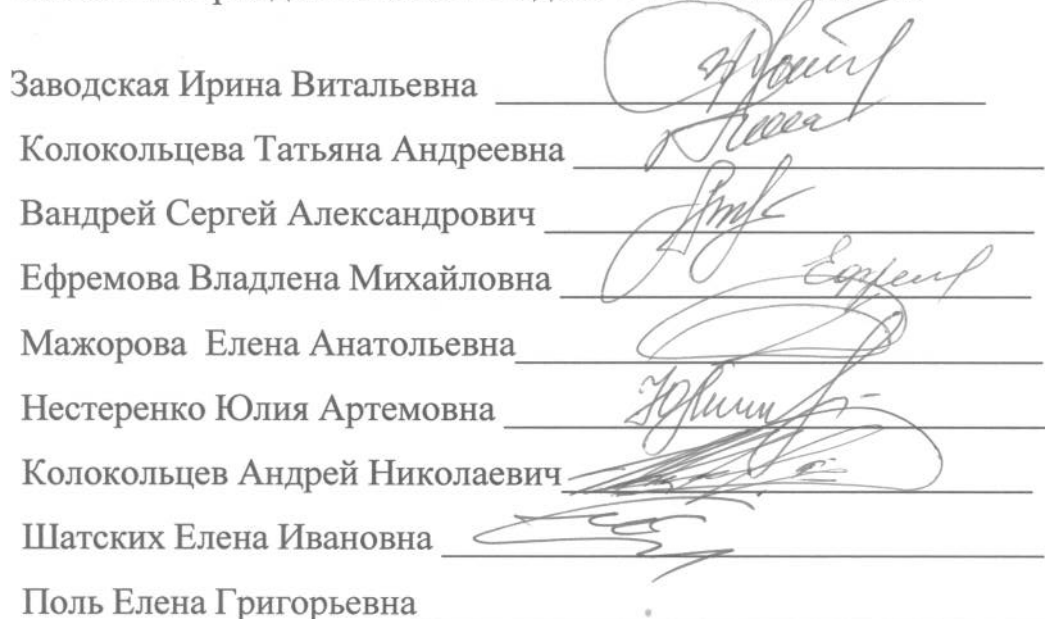 Заводская Ирина Витальевна
Колокольцева Татьяна Андреевна
Вандрей Сергей Александрович
Ефремова Владлена Михайловна
Мажорова Елена Анатольевна
Нестеренко Юлия Артемовна
Колокольцев Андрей Николаевич
Шатских Елена Ивановна
Поль Елена Григорьевна